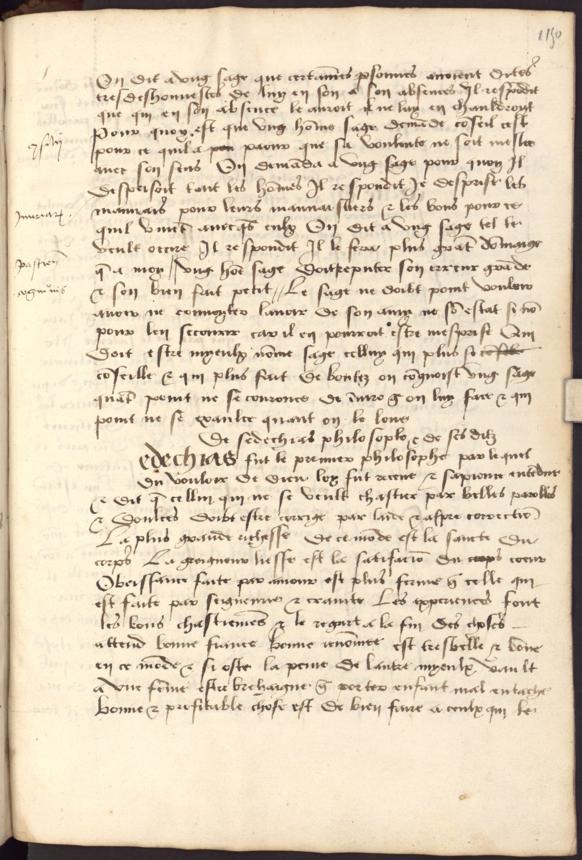 On dit a ung sage que certaines psonnes avoient dittes
tresdeshonnestes de luy en son a son absences Il respondit
que qui en son absence le auroit il ne luy en chauldroit
Pour quoy est que ung home sage demade coseil cest
pour ce quil a paour que sa voulente ne soit meslee
avec son sens On demanda a ung sage pour quoy Il
desprisoit tout les homes Il respondit Je desprise les
mauvais pour leurs mauvaistiers & les bons pour ce
quil vivent avecqs eulx On dit a ung sage tel te
veult occire Il respondit Il se fera plus grat domaige
q a moy // ung hoe sage doit reputer son erreur grade
& son bien fait petit // Le sage ne doibt point vouloir
avoir ne convoyter lavoir de son amy ne so estat si no
pour len secourir car il en pourroit estre mesprise Cely
doit estre myeulx nome sage celluy qui plus se
coseille & qui plus fait de bontez on cognoist ung sage
quat point ne se courouce de iniure q on luy face & qui
point ne se exaulce quant on le loue
De sedechias philosophe & de ses ditz
Sedechias fut le premier philosophe par lequel
du vouloir de dieu loy fut receue & sapience entendue
& dit q celluy qui ne se veult chastier par belles parolles
& doulces doibt estre corrige par laide & aspre correction
La plus grande richesse de ce mode est la sancte du
corps La greigneur liesse est la satisfacio du cueur
Obeissance faite par amour est plus ferme q celle qui
est faite par seigneurie & crainte Les experiences sont
les bons chastiemes & le regart a la fin des choses
attend bonne fiance bonne renomee est tresbelle & bone
en ce mode & si oste la peine de lautre myeulx vault
a une feme estre brehaigne q porter enfant mal entache
bonne & profitable chose est de bien faire a ceulx qui le